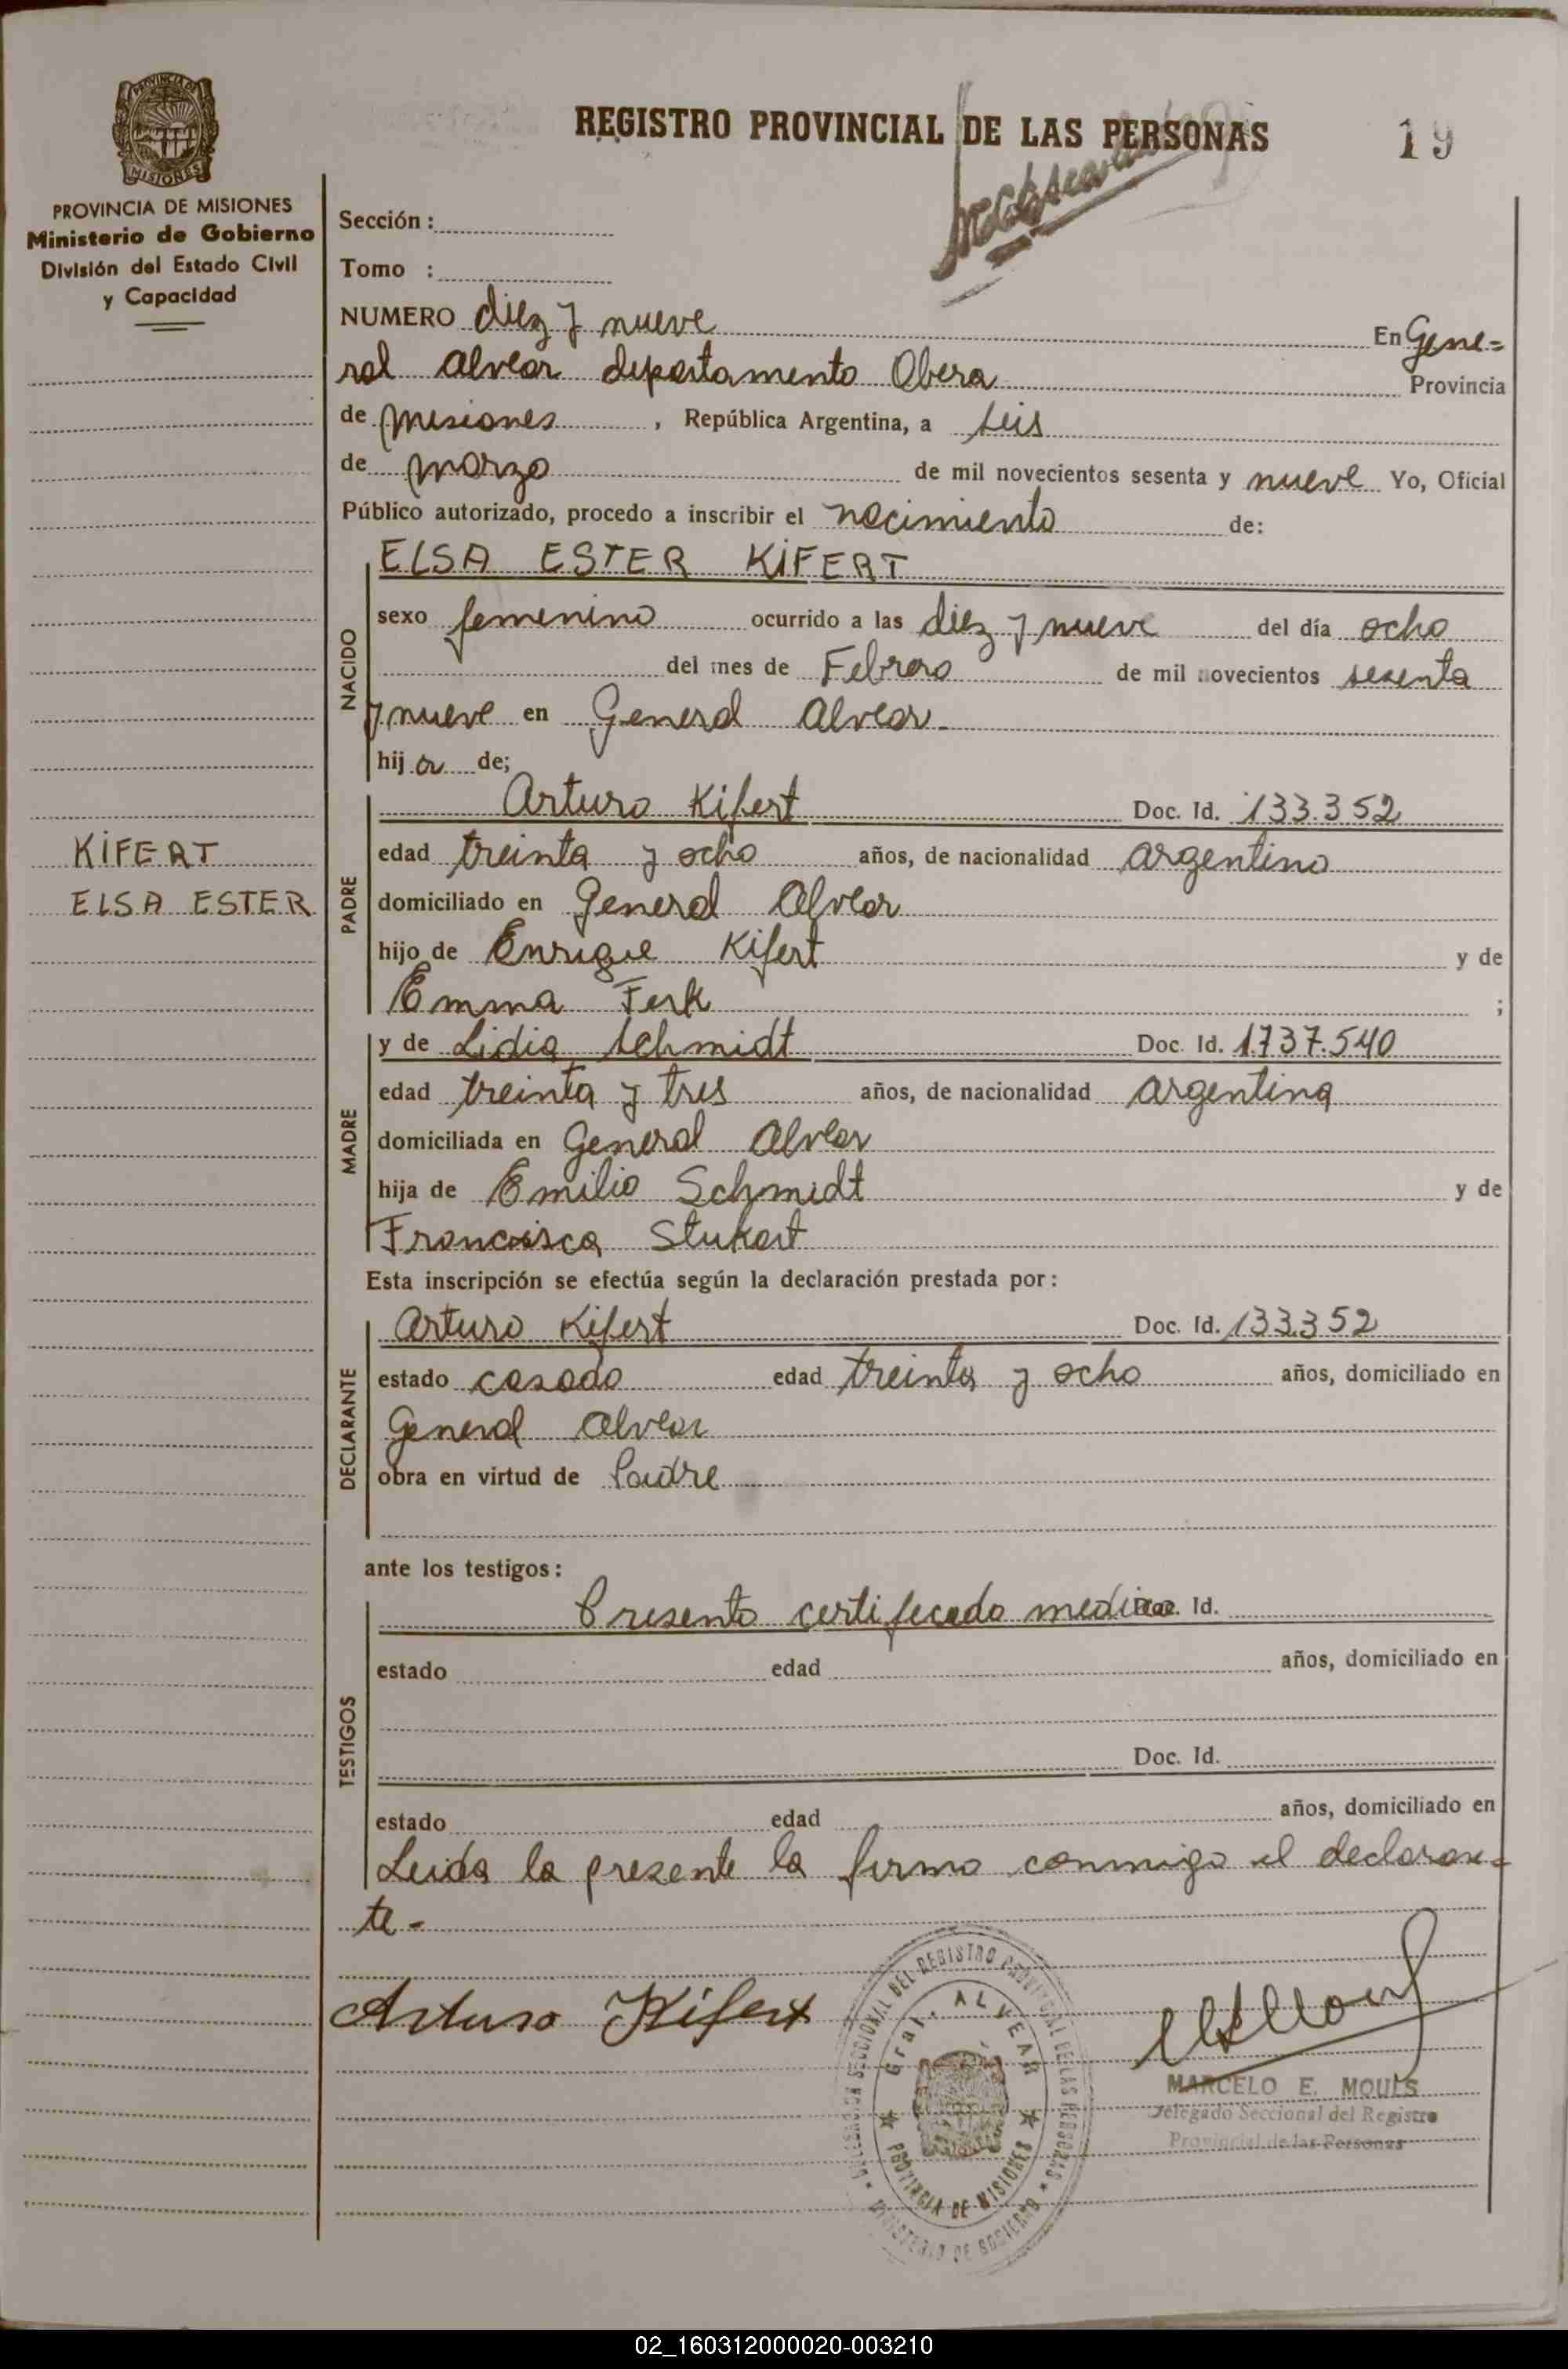 PROVINCIA DE
MISIONES
PROVINCIA DE MISIONES
Ministerio de Gobierno
División del Estado Civil
y Capacidad
KIFERT
ELSA ESTER
REGISTRO PROVINCIAL DE LAS PERSONAS
19
Sección :
Tomo :
NUMERO diez y nueve En Gene=
ral Alvear departamento Obera Provincia
de Misiones , República Argentina, a seis
de Marzo de mil novecientos sesenta y nueve Yo, Oficial
Público autorizado, procedo a inscribir el nacimiento de:
NACIDO
ELSA ESTER KIFERT
sexo femenino ocurrido a las diez y nueve del día ocho
del mes de Febrero de mil novecientos sesenta
y nueve en General Alvear.
hij a de;
PADRE
Arturo Kifert Doc. Id. 133.352
edad treinta y ocho años, de nacionalidad argentino
domiciliado en General Alvear
hijo de Enrique Kifert y de
Emma Ferk ;
MADRE
y de Lidia Schmidt Doc. Id. 1.737.540
edad treinta y tres años, de nacionalidad argentina
domiciliada en General Alvear
hija de Emilio Schmidt y de
Francisca Stukart
Esta inscripción se efectúa según la declaración prestada por :
DECLARANTE
Arturo Kifert Doc. Id. 133.352
estado casado edad treinta y ocho años, domiciliado en
General Alvear
obra en virtud de Padre
ante los testigos :
TESTIGOS
Presento certificado medico Doc. Id.
estado edad años, domiciliado en
Doc. Id.
estado edad años, domiciliado en
Leida la presente la firma conmigo el declaran=
te -
Arturo Kifert
DELEGACION SECCIONAL DEL REGISTRO PROVINCIAL DE LAS PERSONAS
Gral. ALVEAR
PROVINCIA DE MISIONES
MINISTERIO DE GOBIERNO
MARCELO E. MOULS
Delegado Seccional del Registro
Provincial de las Personas
02_160312000020-003210